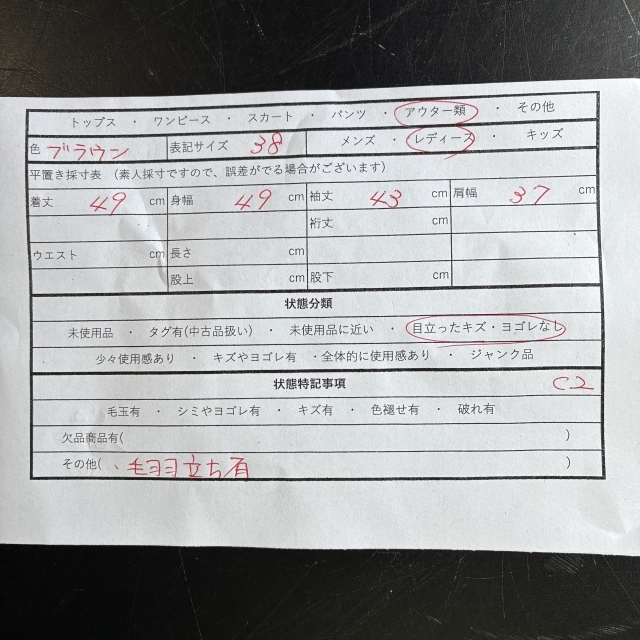 トップス ・ ワンピース ・ スカート ・ パンツ ・ アウター類 ・ その他
色 ブラウン 表記サイズ 38 メンズ ・ レディース ・ キッズ
平置き採寸表 (素人採寸ですので、誤差がでる場合がございます)
着丈 49 cm 身幅 49 cm 袖丈 43 cm 肩幅 37 cm
裄丈 cm
ウエスト cm 長さ cm
股上 cm 股下 cm
状態分類
未使用品 ・ タグ有(中古品扱い) ・ 未使用品に近い ・ 目立ったキズ・ヨゴレなし
少々使用感あり ・ キズやヨゴレ有 ・全体的に使用感あり ・ ジャンク品
状態特記事項 C2
毛玉有 ・ シミやヨゴレ有 ・ キズ有 ・ 色褪せ有 ・ 破れ有
欠品商品有( )
その他( 、毛羽立ち有 )